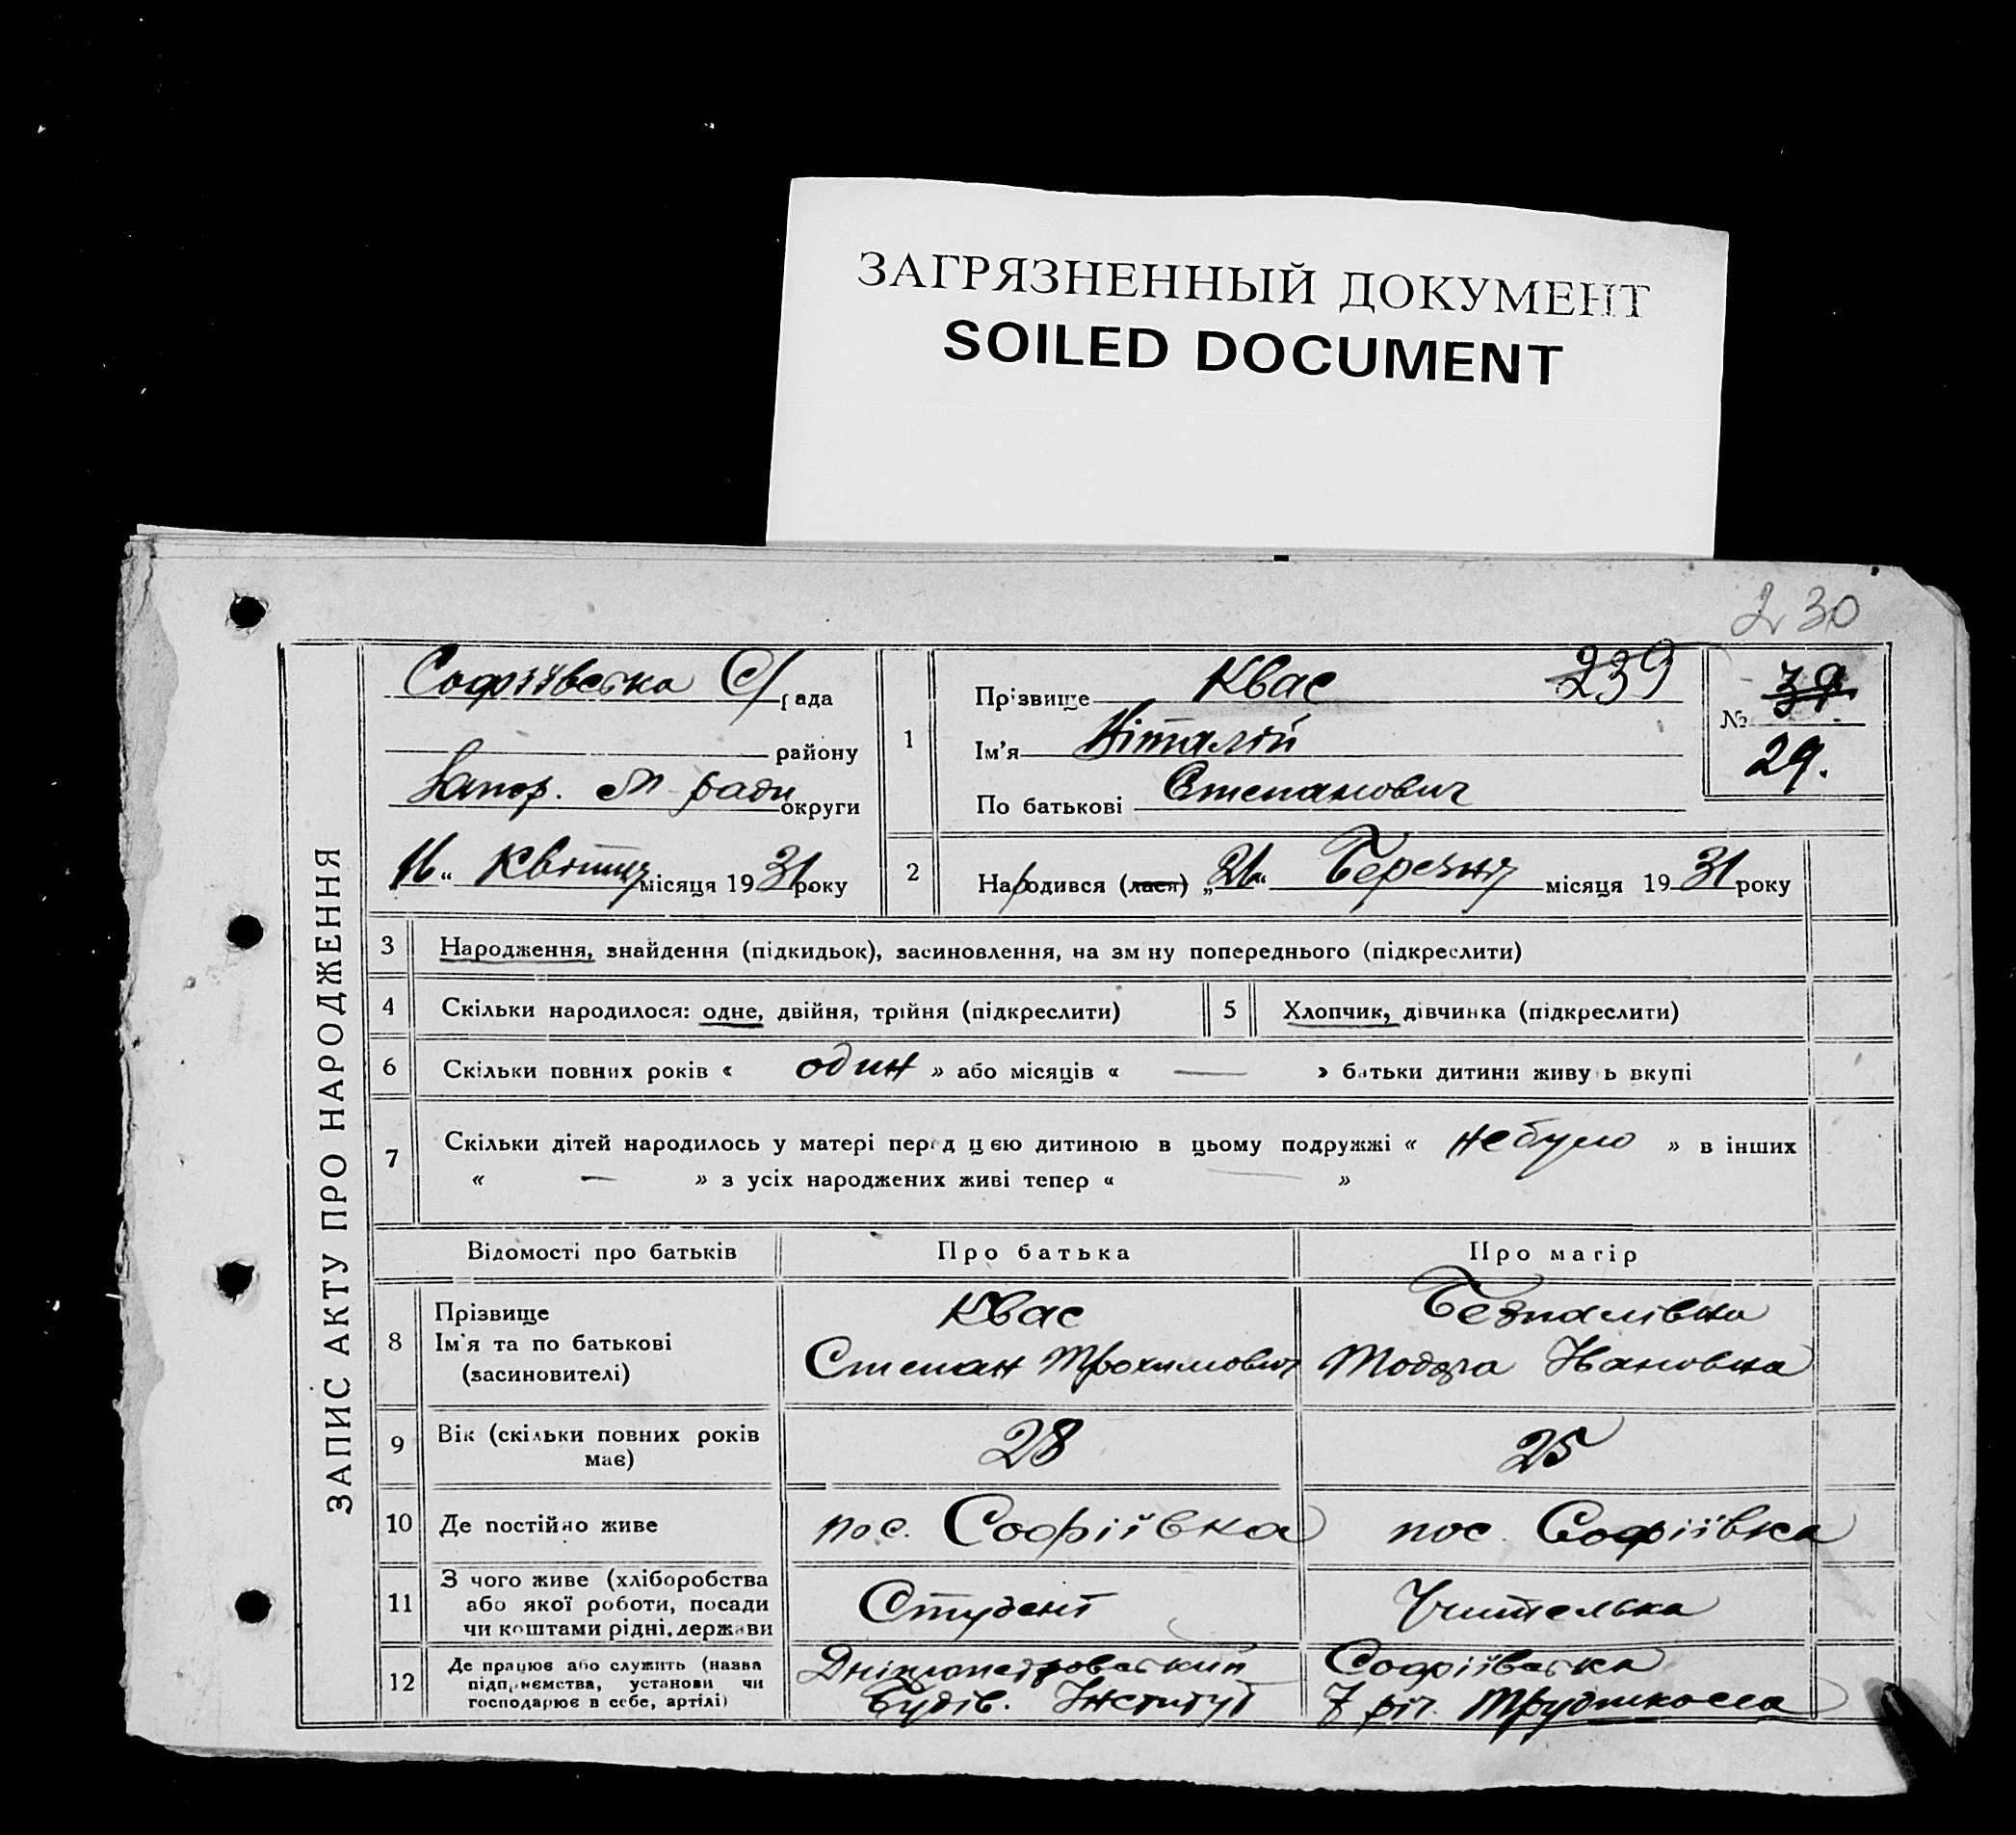 ЗАГРЯЗНЕННЫЙ ДОКУМЕНТ
SOILED DOCUMENT
230
ЗАПИС АКТУ ПРО НАРОДЖЕННЯ
Софіївська С/рада
району
Запор. м ради округи
16 " Квітня місяця 1931 року
1
Прізвище Квас 239
Ім'я Віталій
По батькові Степанович
№ 39
29.
2
Народився (лася) „21" Березня місяця 1931 року
3 Народження, знайдення (підкидьок), засиновлення, на зміну попереднього (підкреслити)
4 Скільки народилося: одне, двійня, трійня (підкреслити) 5 Хлопчик, дівчинка (підкреслити)
6 Скільки повних років « один » або місяців « — » батьки дитини живуть вкупі
7 Скільки дітей народилось у матері перед цією дитиною в цьому подружжі « не було » в інших
« — » з усіх народжених живі тепер « — »
Відомості про батьків Про батька Про матір
8 Прізвище Квас Безпалівна
Ім'я та по батькові Степан Трохимович Тодора Івановна
(засиновителі)
9 Вік (скільки повних років має) 28 25
10 Де постійно живе пос. Софіївка пос. Софіївка
11 З чого живе (хліборобства Студент Учителька
або якої роботи, посади
чи коштами рідні, держави
12 Де працює або служить (назва Дніпропетровський Софіївська
підприємства, установи чи Будів. Інститут 7 річ. Трудшкола
господарює в себе, артілі)